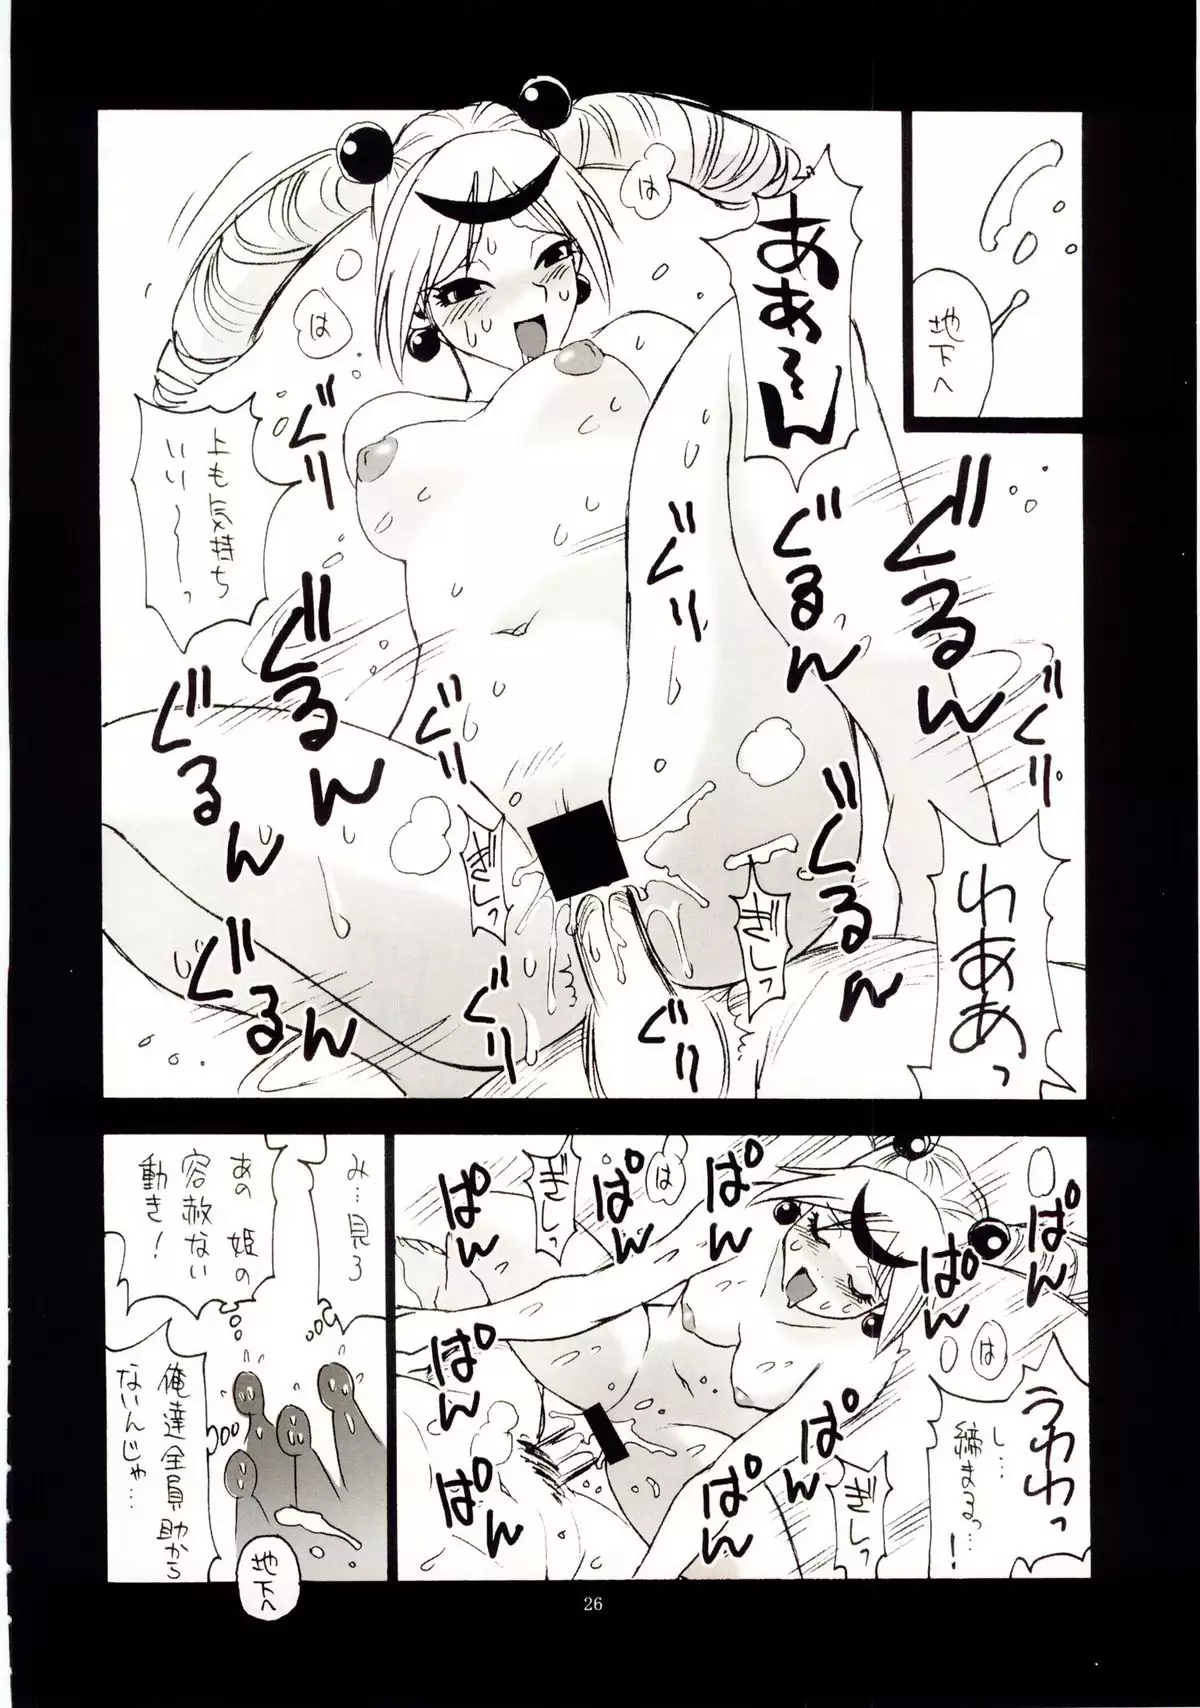 地下へ
あぁ～ん
は
は
上も気持ち
いい～～っ
ぐり
ぐり
ぐるん
ぐるん
ぐるん
ぐるん
ぐり
ぐり
ぎしっ
ぎしっ
ぐるん
ぐるん
ぐり
ぐり
わああっ
ぱん
ぱん
ぱん
ぱん
ぱん
ぱん
ぱん
ぱん
ぱん
は
は
ぎしっ
ぎしっ
うわわっ
し…
締まるっ…！
み…見ろ
あの姫の
容赦ない
動き！
俺達全員助から
ないんじゃ…
地下へ
26